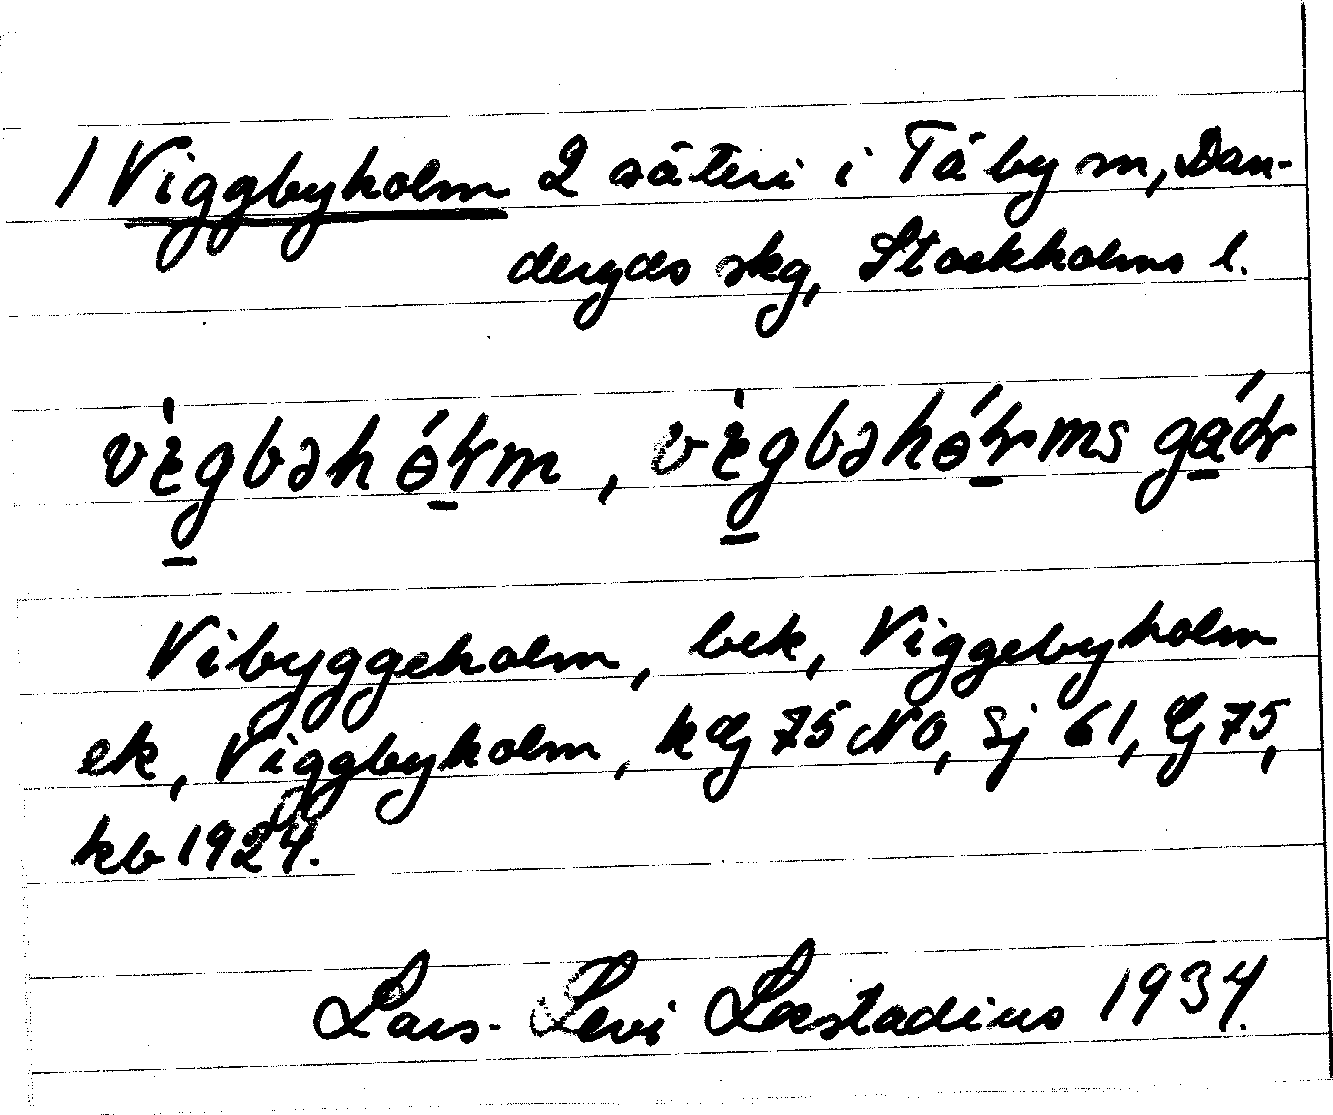 1 Viggbyholm 2 säteri i Täby sn, Dan-
deryds skg, Stockholms l.
Vibyggeholm, bek, Viggebyholm
ek, Viggbyholm, kGJ 75 NO, Sj 61, GJ 75,
kb 1924.
Lars-Levi Læstadius 1934.